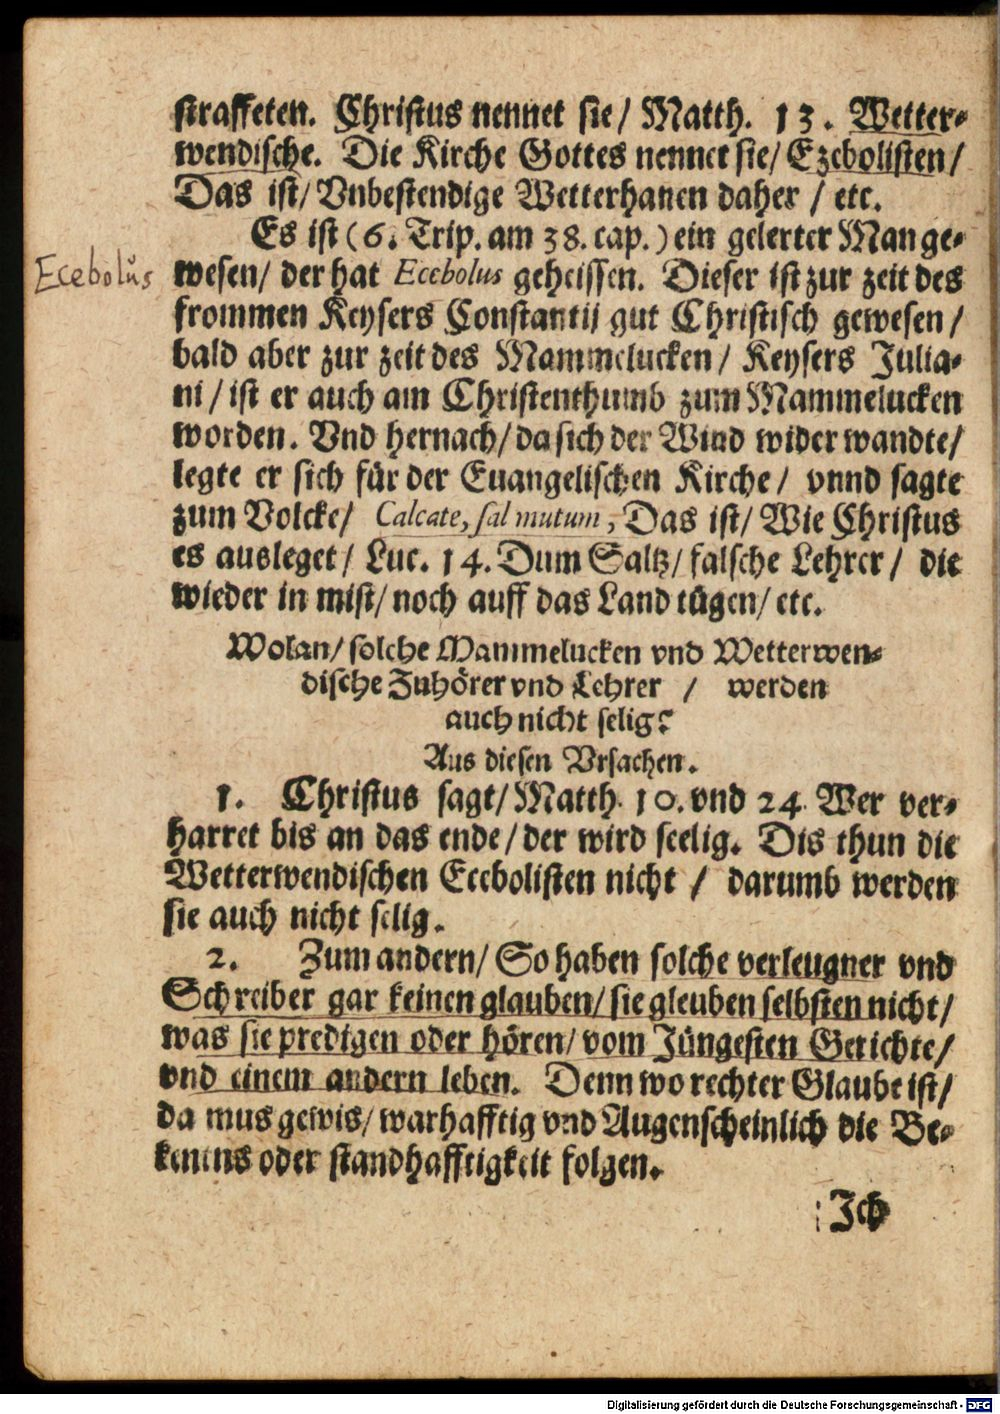 straffeten. Christus nennet sie/ Matth. 13. Wetter-
wendische. Die Kirche Gottes nennet sie/ Ezebolisten/
Das ist/ Vnbestendige Wetterhanen daher / etc.
Es ist (6. Trip. am 38. cap.) ein gelerter Man ge-
Ecebolus
wesen/ der hat Ecebolus geheissen. Dieser ist zur zeit des
frommen Keysers Constantij gut Christisch gewesen/
bald aber zur zeit des Mammelucken/ Keysers Julia-
ni/ ist er auch am Christenthumb zum Mammelucken
worden. Vnd hernach/ da sich der Wind wider wandte/
legte er sich für der Euangelischen Kirche/ vnnd sagte
zum Volcke/ Calcate, sal mutum, Das ist/ Wie Christus
es ausleget/ Luc. 14. Dum Saltz/ falsche Lehrer/ die
wieder in mist/ noch auff das Land tügen/ etc.
Wolan/ solche Mammelucken vnd Wetterwen-
dische Zuhörer vnd Lehrer / werden
auch nicht selig?
Aus diesen Vrsachen.
1. Christus sagt/ Matth. 10. vnd 24. Wer ver-
harret bis an das ende/ der wird seelig. Dis thun die
Wetterwendischen Ecebolisten nicht / darumb werden
sie auch nicht selig.
2. Zum andern/ So haben solche verleugner vnd
Schreiber gar keinen glauben/ sie gleuben selbsten nicht/
was sie predigen oder hören/ vom Jüngesten Gerichte/
vnd einem andern leben. Denn wo rechter Glaube ist/
da mus gewis/ warhafftig vnd Augenscheinlich die Be-
kentnis oder standhafftigkeit folgen.
Ich
Digitalisierung gefördert durch die Deutsche Forschungsgemeinschaft - DFG